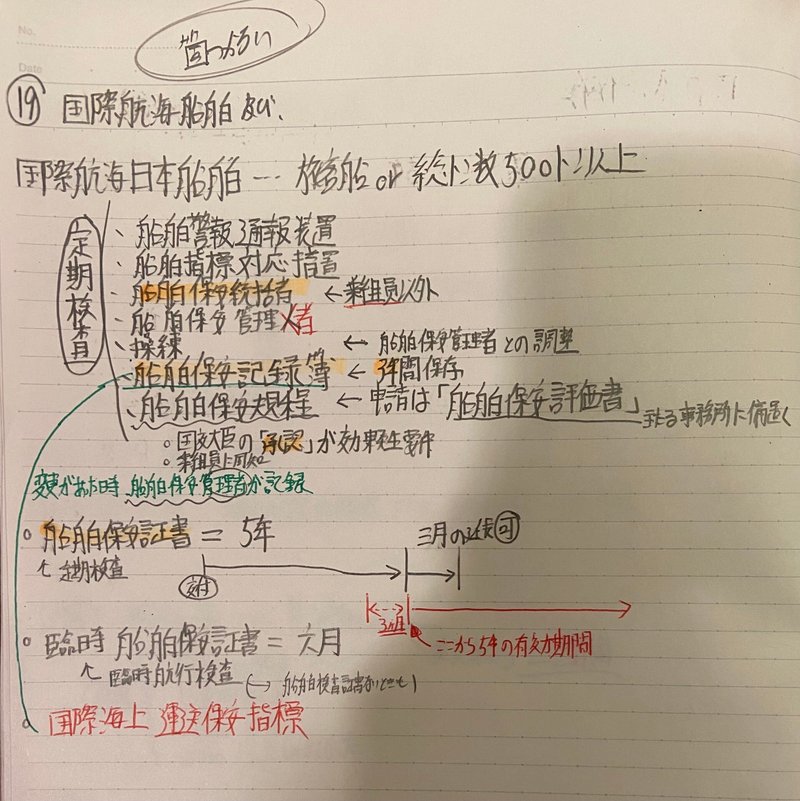 No.
Date
⑲ 国際航海船舶及び、
国際航海日本船舶… 旅客船or 総トン数500トン以上
定期検査
、船舶警報通報装置
、船舶指標対応措置
、船舶保安統括者 ← 乗組員以外
、船舶保安管理者
、操練 ← 船舶保安管理者との調整
、船舶保安記録簿 ← 3年間保存
、船舶保安規程 ← 申請は「船舶保安評価書」
主たる事務所に備置く
○国交大臣の「承認」が効果発生要件
○乗組員に周知
変更があった時 船舶保安管理者が記録
○ 船舶保安証書 = 5年
三月の延長 可
↖定期検査
交付
3ヶ月
ここから5年の有効期間
○ 臨時 船舶保安証書 = 六月
↖臨時航行検査
国際海上運送保安指標